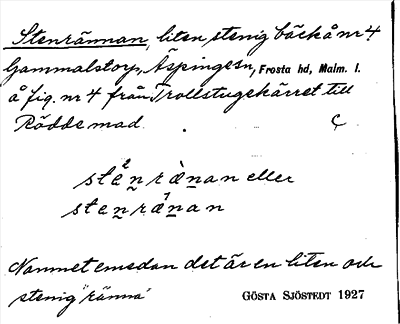 Stenrännan, liten stenig bäck å nr 4
Gammalstorp, Äspinge sn, Frosta hd, Malm. l.
å fig. nr 4 från Trollstugekärret till
Rödde mad.
sten ràenan eller
stenránan
Namnet emedan det är en liten och
stenig "ränna"
GÖSTA SJÖSTEDT 1927